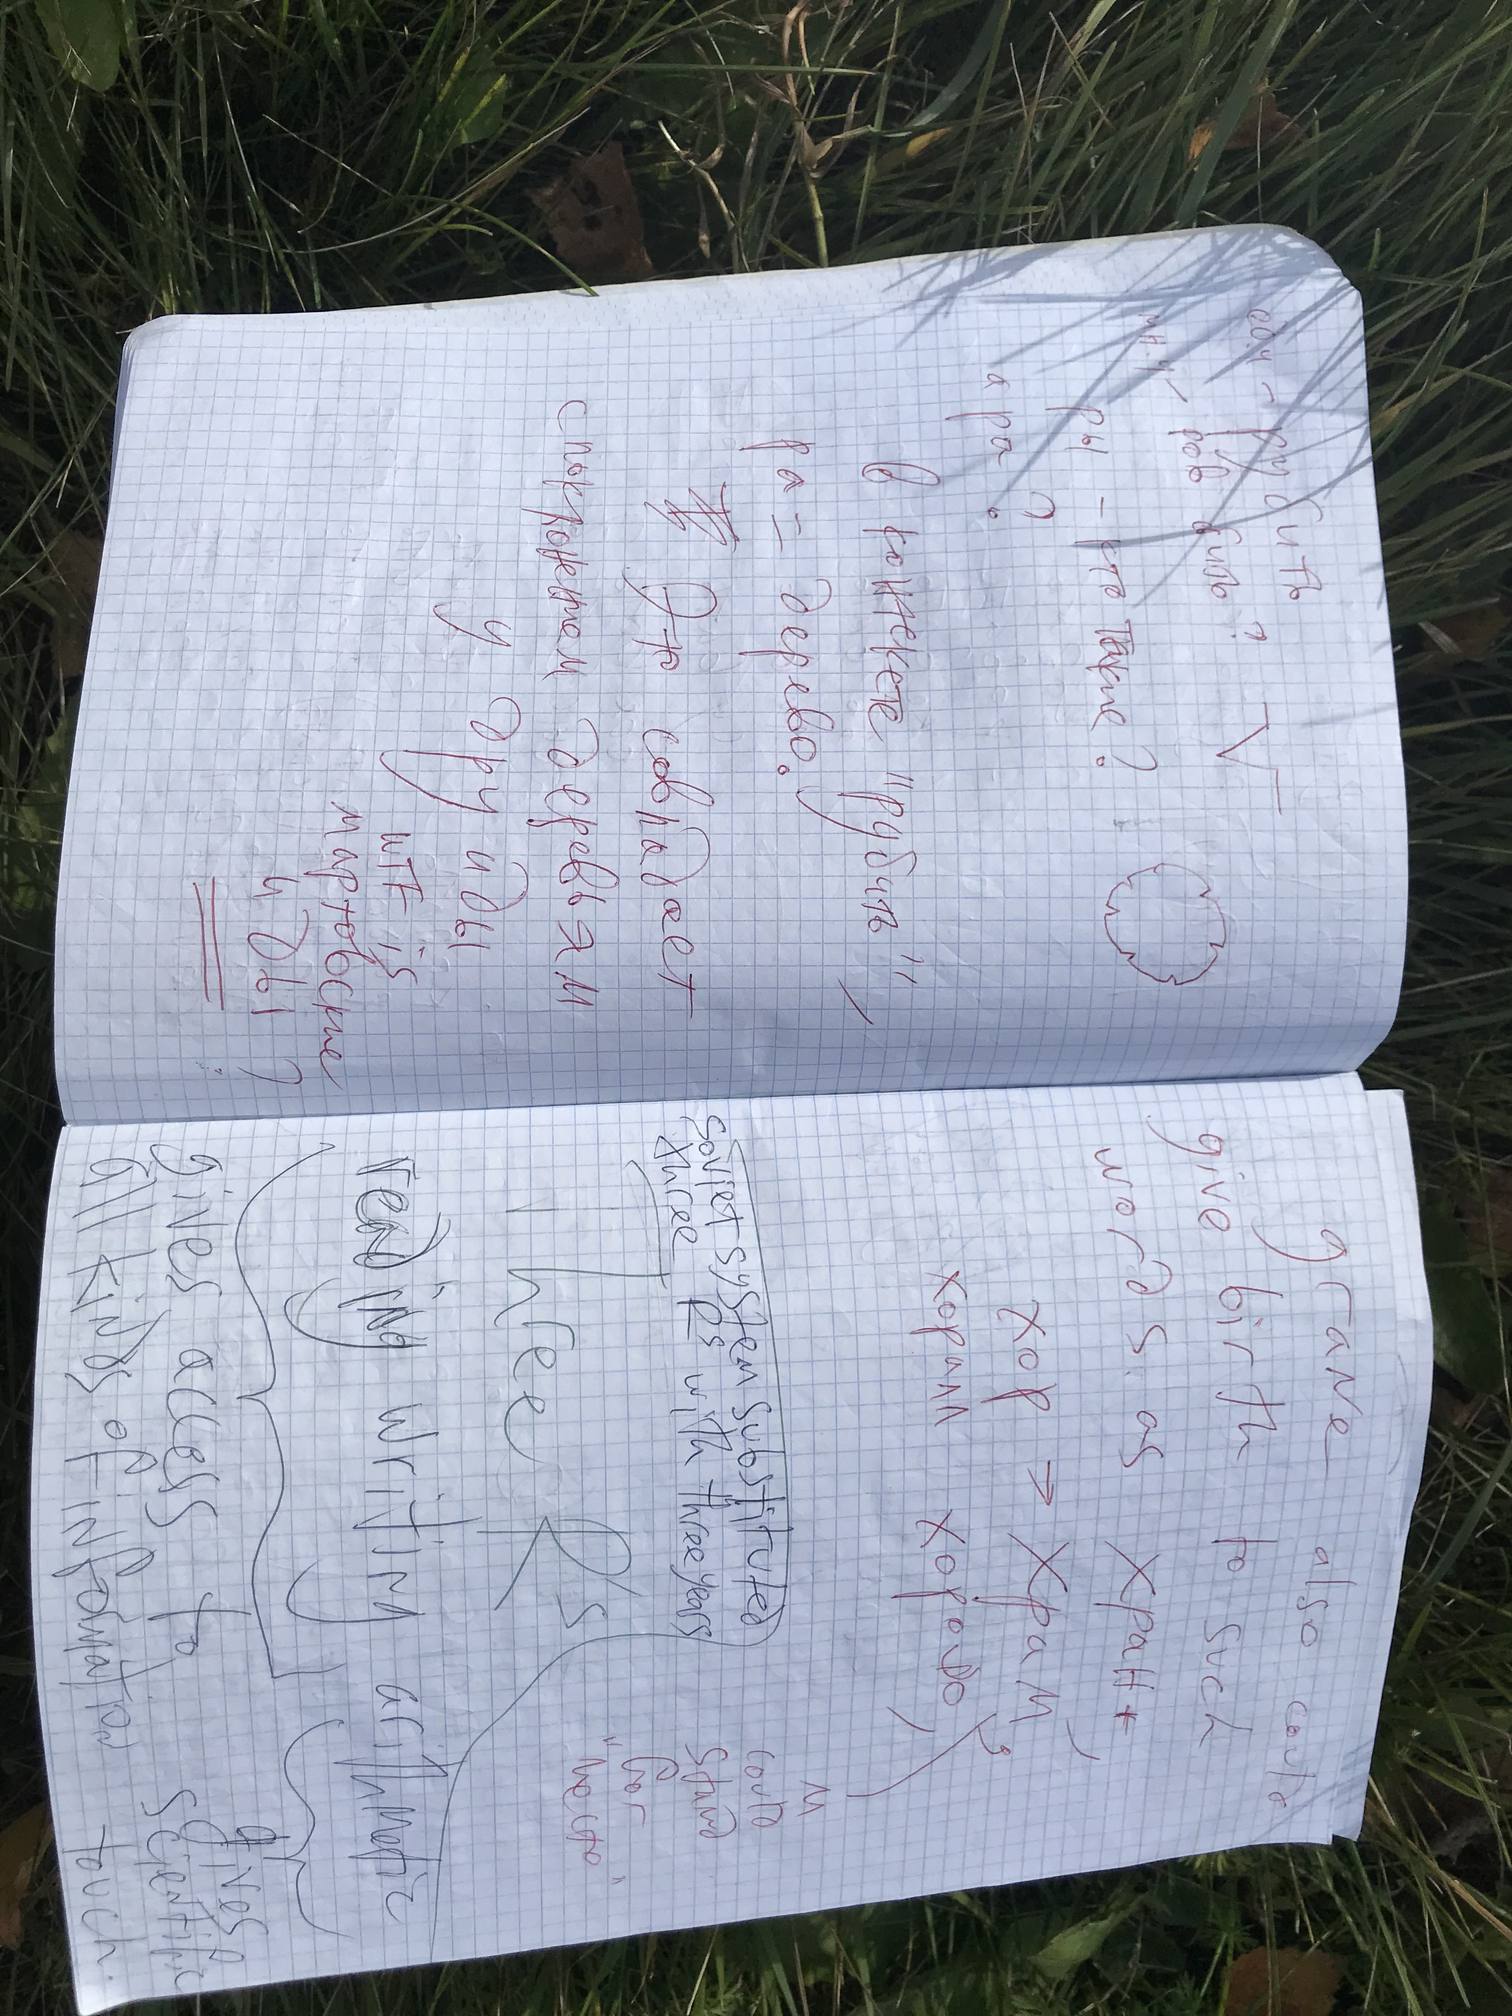 общ - рубить
мн.ч - ров бить?
ры - кто такие?
а ра?
в контексте "рубить",
ра = дерево.
Это совпадает
с поклонением деревьям
у друиды
WTF is
мартовские
иды?
grave also could
give birth to such
words as храни
хор → храм,
хорал хорово
м
could
stand
for
"место"
Soviet system substituted
three Rs with three years
Three R's
reading writing arithmetic
gives access to
all kinds of information
gives
scientific
touch.